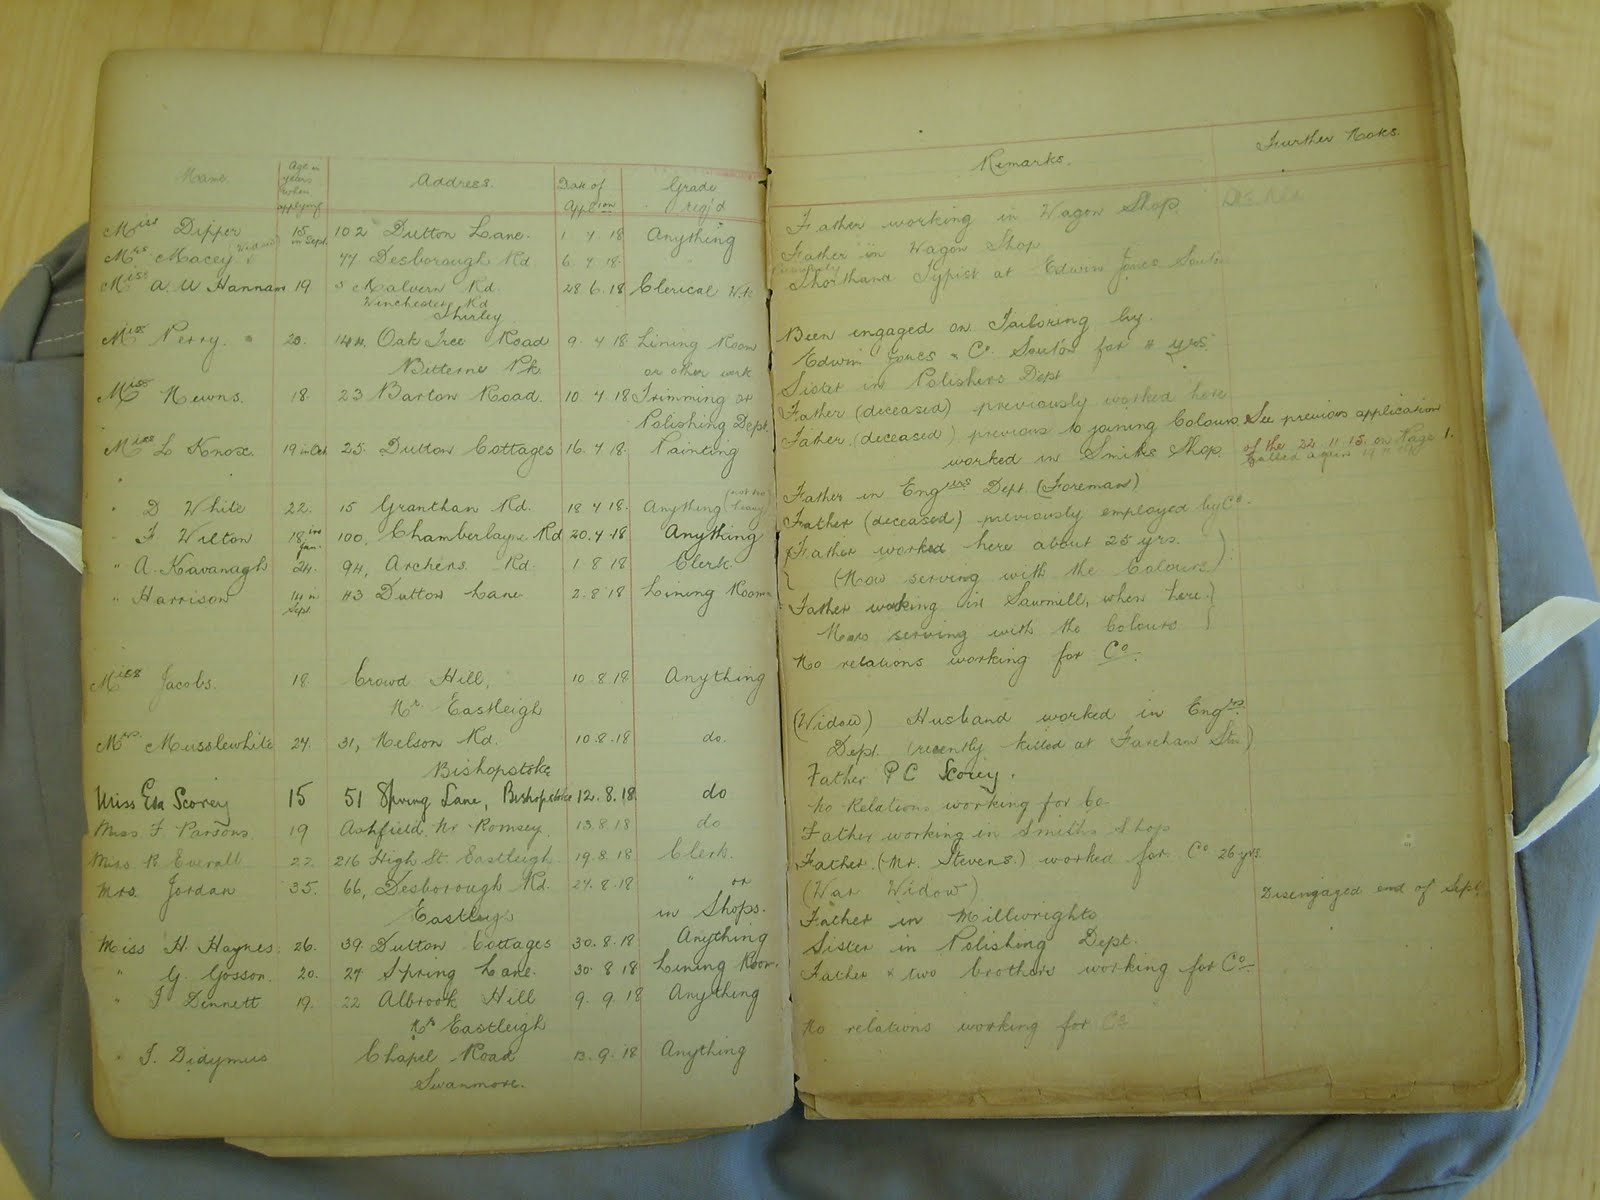 Name
Age in years when applying
Address.
Date of Appl ion
Grade req'd
Miss Dipper 15 in Sept. 102 Dutton Lane. 1. 7. 18 Anything
Mrs Macey (Widow) 77 Desborough Rd. 6. 7. 18.
Miss A. W Hannam 19 5 Malvern Rd. 28. 6. 18 Clerical Wk
Winchester Rd
Shirley
Miss Perry. 20. 144, Oak Tree Road 9. 7 18 Lining Room
Bitterne Pk. or other work
Miss Newns. 18. 23 Barton Road. 10. 7 18 Trimming or
Polishing Dept.
Miss L Knox. 19 in Oct 25. Dutton Cottages 16. 7. 18. Painting
" D White 22. 15 Granthan Rd. 18 7 18. Anything (not too heavy)
" F Wilton 18 in Jan. 100, Chamberlayne Rd 20. 7. 18 Anything
" A. Kavanagh 24. 94, Archers Rd. 1 8 18 Clerk.
" Harrison 14 in Sept 43 Dutton Lane 2. 8 18 Lining Room
Miss Jacobs. 18 Crowd Hill, 10. 8. 18 Anything
Nr Eastleigh
Mrs. Musslewhite 24. 31, Nelson Rd. 10. 8. 18 do.
Bishopstoke
Miss Eva Scorey 15 51 Spring Lane, Bishopstoke 12. 8. 18. do
Miss F. Parsons 19 Ashfield Nr Romsey. 13. 8. 18 do
Miss R Everall 22. 216 High St. Eastleigh 19. 8. 18 Clerk.
Mrs. Jordan 35. 66, Desborough Rd. 27. 8. 18 " or
Eastleigh in Shops.
Miss H. Haynes 26. 39. Dutton Cottages 30. 8. 18 Anything
" G. Gosson. 20. 27 Spring Lane. 30. 8 18 Lining Room.
" F Dennett 19. 22 Albrook Hill 9. 9. 18 Anything
Nr Eastleigh
" F. Didymus Chapel Road 13. 9. 18 Anything
Swanmore.
Remarks. Further Notes.
Father working in Wagon Shop.
Father in Wagon Shop
Shorthand Typist at Edwin Jones Souton
Been engaged on Tailoring by
Edwin Jones & Co. Souton for 4 yrs.
Sister in Polishers Dept
Father (deceased) previously worked here
Father (deceased) previous to joining Colours See previous application
worked in Smiths Shop. of the 22. 11 15. on Page 1.
Called again
Father in Engrs Dept. (Foreman)
Father (deceased) previously employed by Co.
Father worked here about 25 yrs.
(Now serving with the Colours)
Father working in Sawmill, when here.
Now serving with the Colours
No relations working for Co.
(Widow) Husband worked in Engrs.
Dept. (recently killed at Fareham Stn)
Father P C Scorey.
No Relations working for Co.
Father working in Smiths Shop
Father. (Mr. Stevens.) worked for Co 26 yrs.
(War Widow) Disengaged end of Sept.
Father in Millwrights
Sister in Polishing Dept.
Father & two brothers working for Co.
No relations working for Co